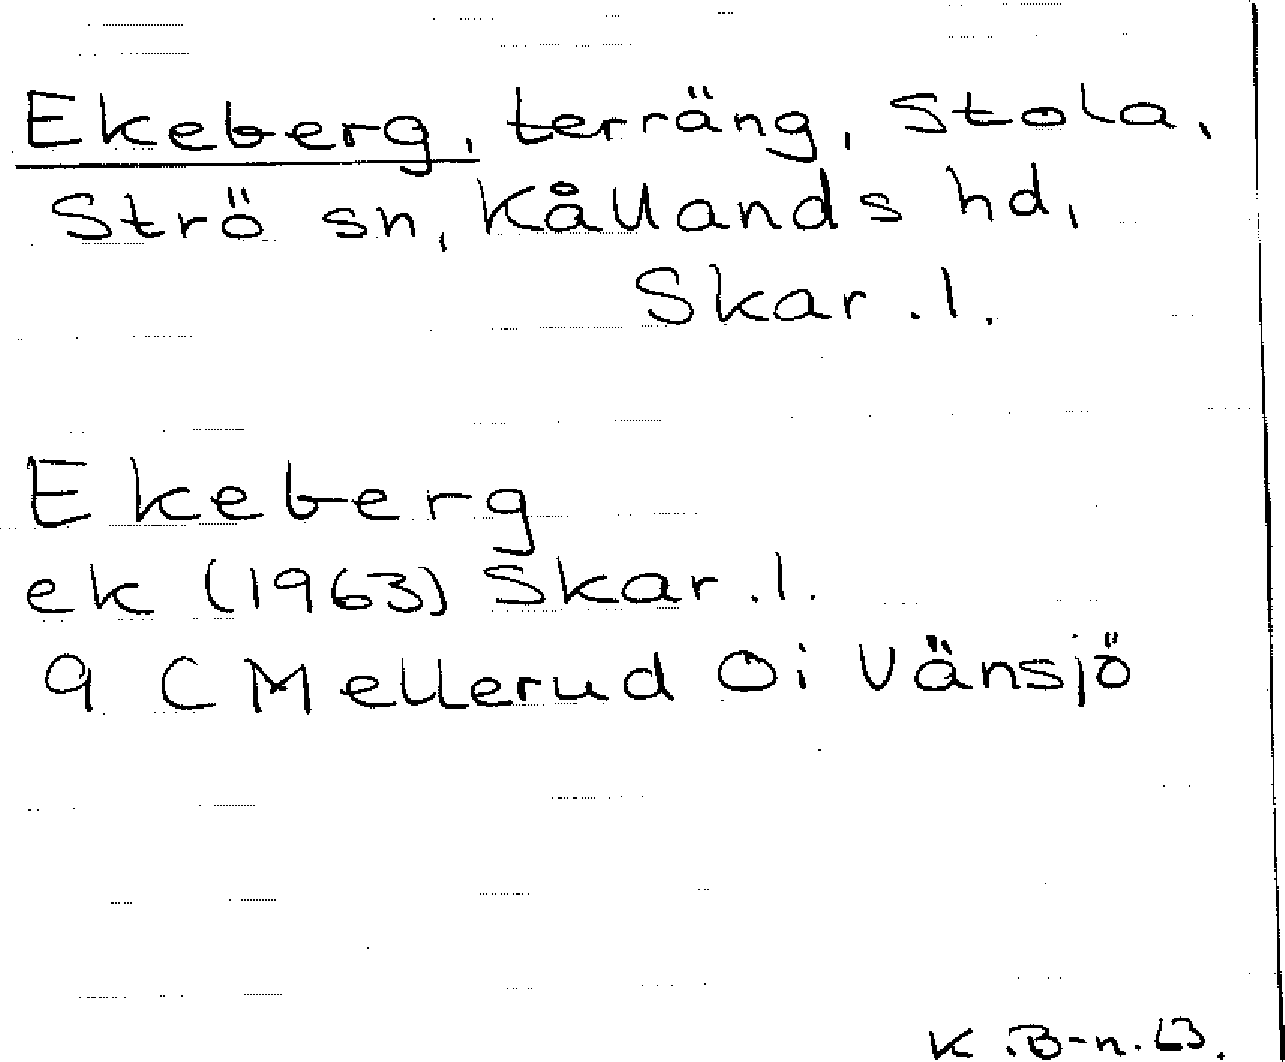 Ekeberg, terräng, Stola,
Strö sn, Kållands hd,
Skar. l.
Ekeberg
ek (1963) Skar. l.
9 C Mellerud Öi Vänsjö
K. B-n. 63.